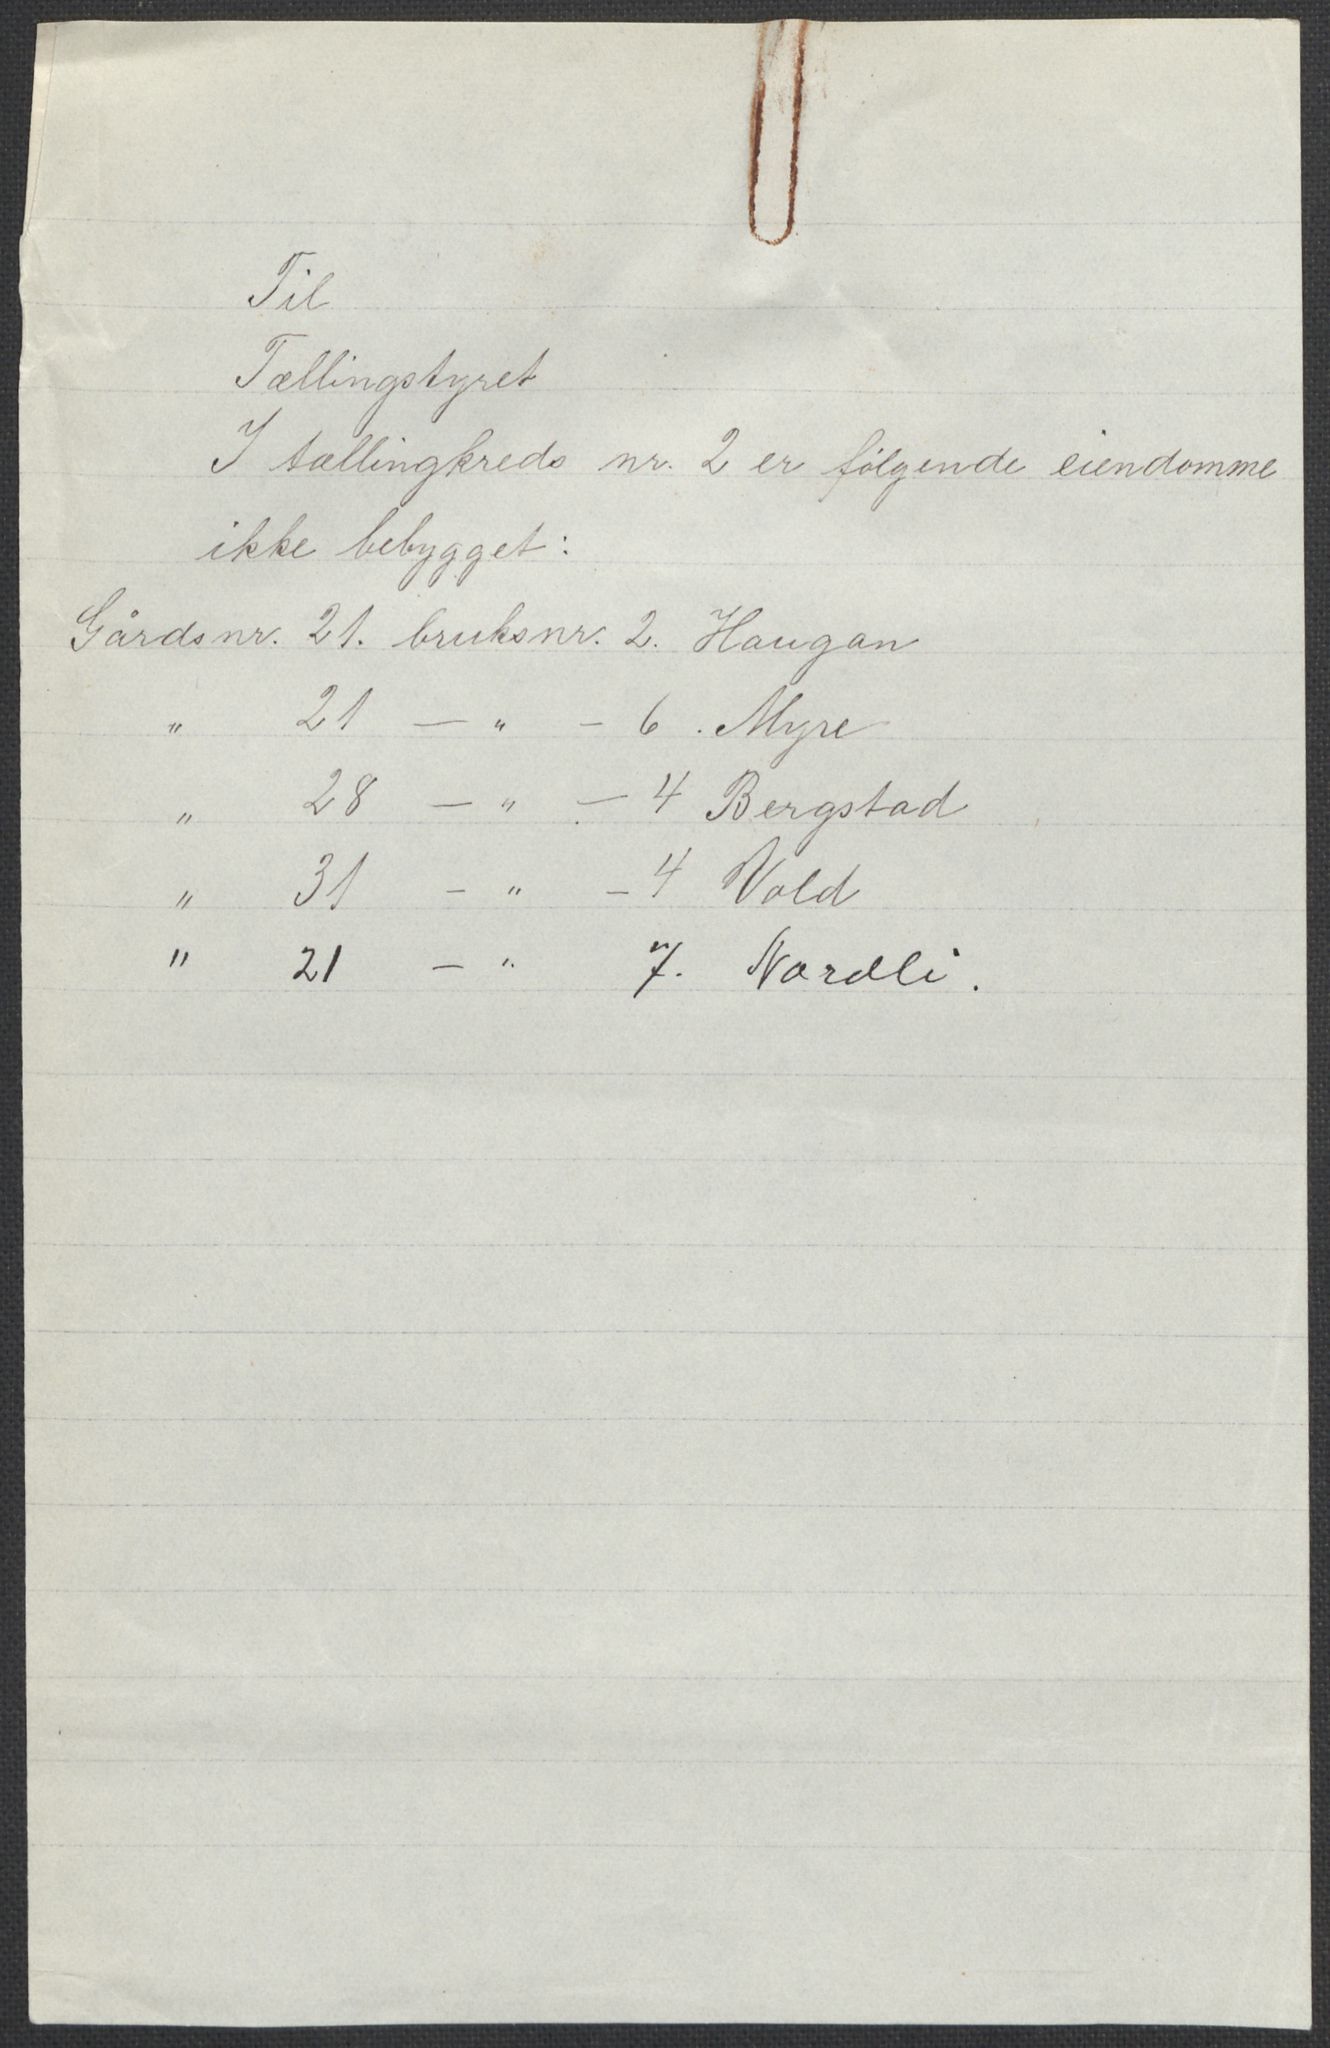 Til
Tællingstyret
I tællingkreds nr. 2 er følgende eiendomme
ikke bebygget:
Gårdsnr. 21. bruksnr. 2. Haugan
" 21 — " — 6. Myre
" 28 — " — 4 Bergstad
" 31 — " — 4 Vold
" 21 — " 7. Nordli.